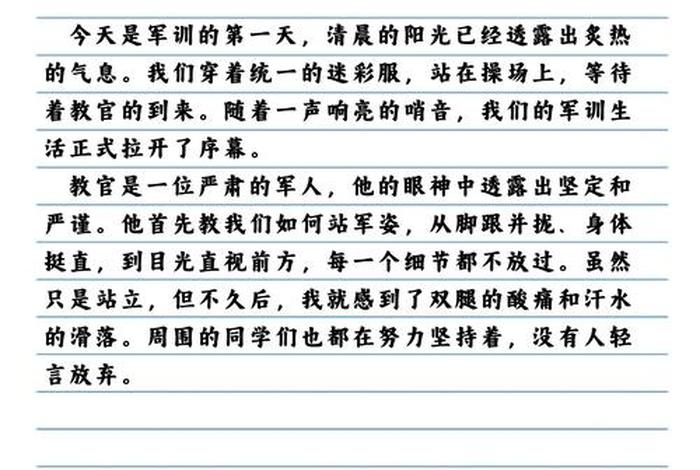 今天是军训的第一天，清晨的阳光已经透露出炙热
的气息。我们穿着统一的迷彩服，站在操场上，等待
着教官的到来。随着一声响亮的哨音，我们的军训生
活正式拉开了序幕。
教官是一位严肃的军人，他的眼神中透露出坚定和
严谨。他首先教我们如何站军姿，从脚跟并拢、身体
挺直，到目光直视前方，每一个细节都不放过。虽然
只是站立，但不久后，我就感到了双腿的酸痛和汗水
的滑落。周围的同学们也都在努力坚持着，没有人轻
言放弃。